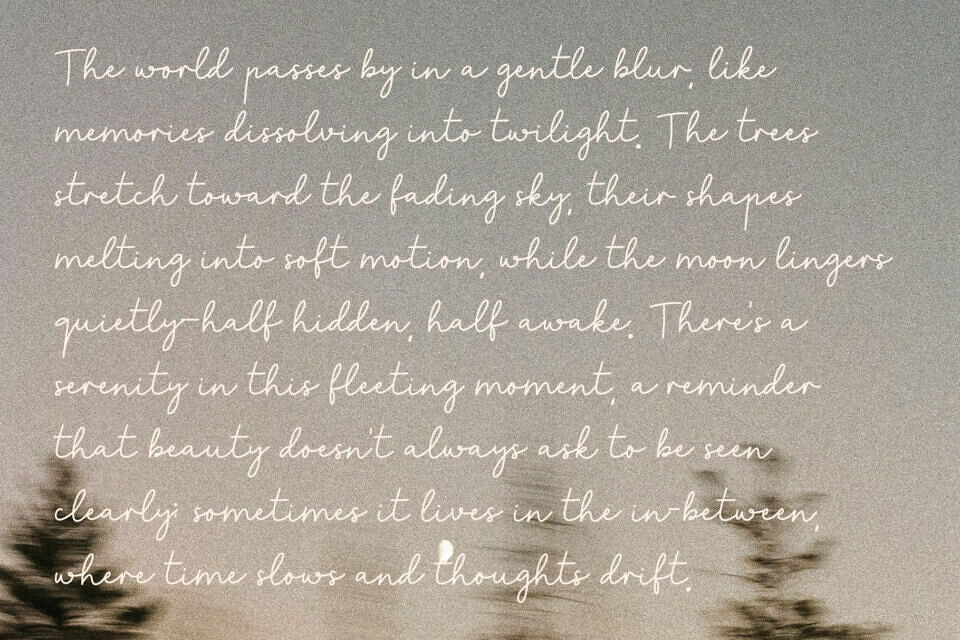 The world passes by in a gentle blur, like
memories dissolving into twilight. The trees
stretch toward the fading sky, their shapes
melting into soft motion, while the moon lingers
quietly-half hidden, half awake. There's a
serenity in this fleeting moment, a reminder
that beauty doesn't always ask to be seen
clearly; sometimes it lives in the in-between,
where time slows and thoughts drift.